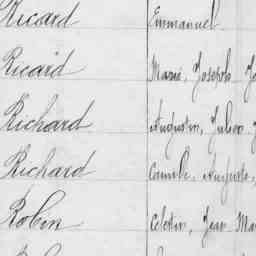 Ricard Emmanuel
Ricard Marie, Joseph, J
Richard Augustin, Jules, J
Richard Camille, Auguste,
Robin Celestin, Jean Mar